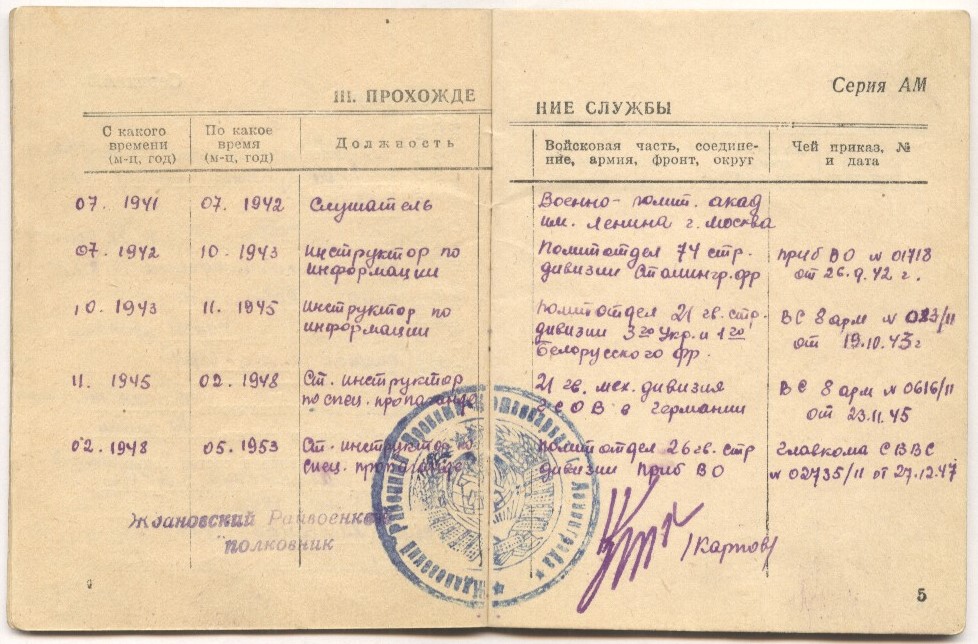 Серия АМ
III. ПРОХОЖДЕ
НИЕ СЛУЖБЫ
С какого времени (м-ц, год)
По какое время (м-ц, год)
Должность
Войсковая часть, соедине-
ние, армия, фронт, округ
Чей приказ, №
и дата
07. 1941 07. 1942 Слушатель Военно-полит. акад
им. Ленина г. Москва
07. 1942 10. 1943 инструктор по Политотдел 74 стр. приб ВО № 01718
информации дивизии Сталингр. фр от 26.9.42 г.
10. 1943 11. 1945 инструктор по политотдел 21 гв. стр. ВС 8 арм №
информации дивизии 3го Укр. и 1го от 19.10.43 г
Белорусского фр.
11. 1945 02. 1948 Ст. инструктор 21 гв. мех. дивизия ВС 8 арм № 0616/11
по спец. пропаганде ГСОВ в Германии от 23.11.45
02. 1948 05. 1953 Ст. инструктор по Политотдел 26 гв. стр Главкома СВВС
спец. пропаганде дивизии приб ВО № 02735/11 от 27.12.47
Ждановский Райвоенком
полковник
/Карпов/
Ждановский Районный Военный Комиссариат Ленинграда
5